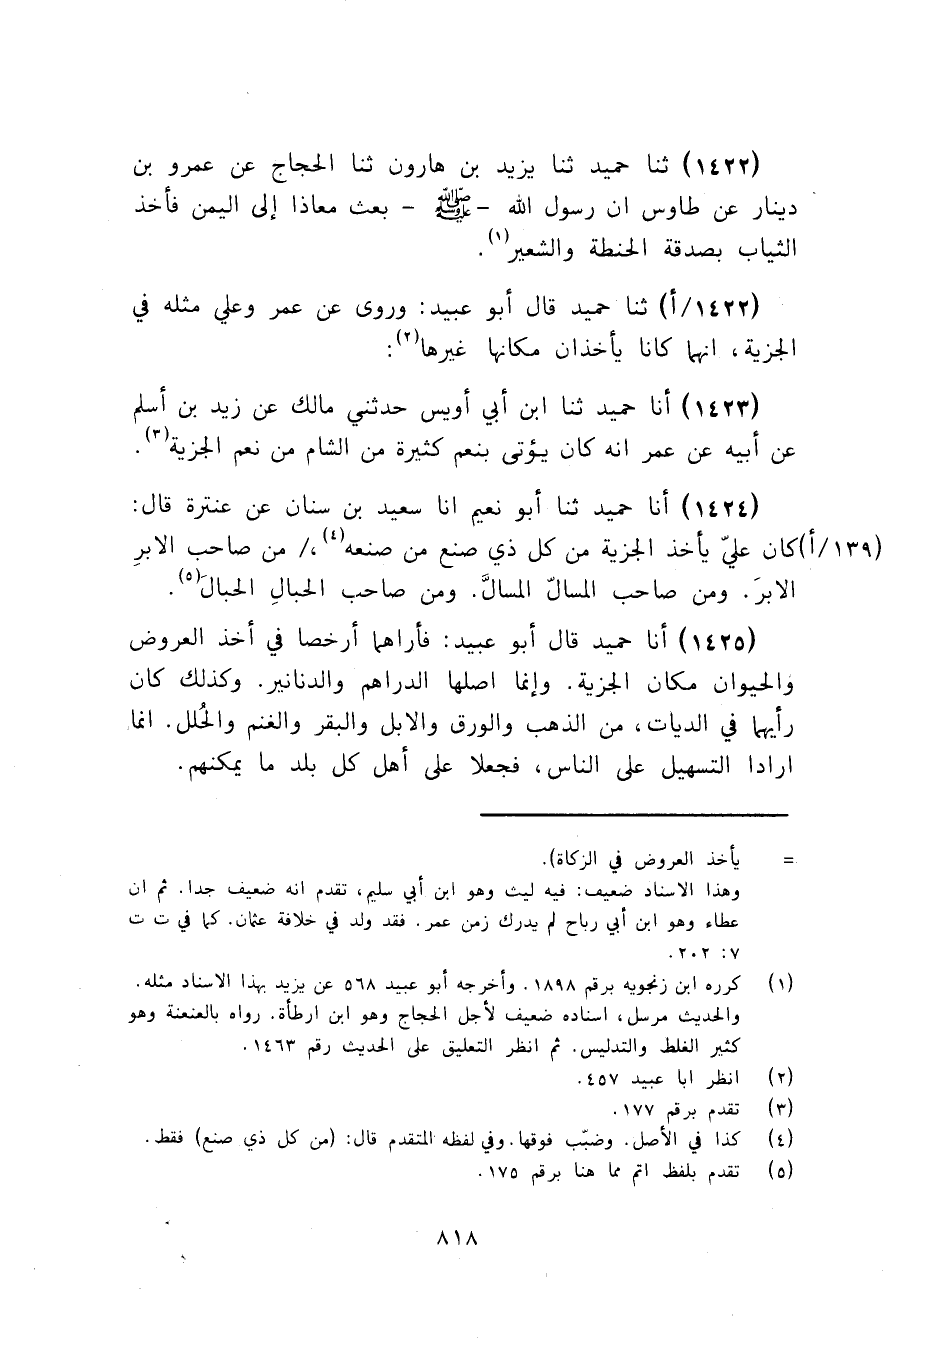 (١٤٢٢) ثنا حميد ثنا يزيد بن هارون ثنا الحجاج عن عمرو بن
دينار عن طاوس ان رسول الله -ﷺ- بعث معاذا إلى اليمن فأخذ
الثياب بصدقة الحنطة والشعير(١).
(١٤٢٢/أ) ثنا حميد قال أبو عبيد: وروى عن عمر وعلي مثله في
الجزية، انهما كانا يأخذان مكانها غيرها(٢):
(١٤٢٣) أنا حميد ثنا ابن أبي أويس حدثني مالك عن زيد بن أسلم
عن أبيه عن عمر انه كان يؤتى بنعم كثيرة من الشام من نعم الجزية(٣).
(١٤٢٤) أنا حميد ثنا أبو نعيم انا سعيد بن سنان عن عنترة قال:
(١٣٩/أ) كان عليّ يأخذ الجزية من كل ذي صنع من صنعه(٤)،/ من صاحب الابرِ
الابرَ. ومن صاحب المسالّ المسالَّ. ومن صاحب الحبالِ الحبالَ(٥).
(١٤٢٥) أنا حميد قال أبو عبيد: فأراهما أرخصا في أخذ العروض
والحيوان مكان الجزية. وإنما اصلها الدراهم والدنانير. وكذلك كان
رأيهما في الديات، من الذهب والورق والابل والبقر والغنم والحُلل. انما
ارادا التسهيل على الناس، فجعلا على أهل كل بلد ما يمكنهم.
= يأخذ العروض في الزكاة).
وهذا الاسناد ضعيف: فيه ليث وهو ابن أبي سليم، تقدم انه ضعيف جدا. ثم ان
عطاء وهو ابن أبي رباح لم يدرك زمن عمر. فقد ولد في خلافة عثمان. كما في ت ت
٧: ٢٠٢.
(١) كرره ابن زنجويه برقم ١٨٩٨. وأخرجه أبو عبيد ٥٦٨ عن يزيد بهذا الاسناد مثله.
والحديث مرسل، اسناده ضعيف لأجل الحجاج وهو ابن ارطأة. رواه بالعنعنة وهو
كثير الغلط والتدليس. ثم انظر التعليق على الحديث رقم ١٤٦٣.
(٢) انظر ابا عبيد ٤٥٧.
(٣) تقدم برقم ١٧٧.
(٤) كذا في الأصل. وضبّب فوقها. وفي لفظه المتقدم قال: (من كل ذي صنع) فقط.
(٥) تقدم بلفظ اتم مما هنا برقم ١٧٥.
٨١٨